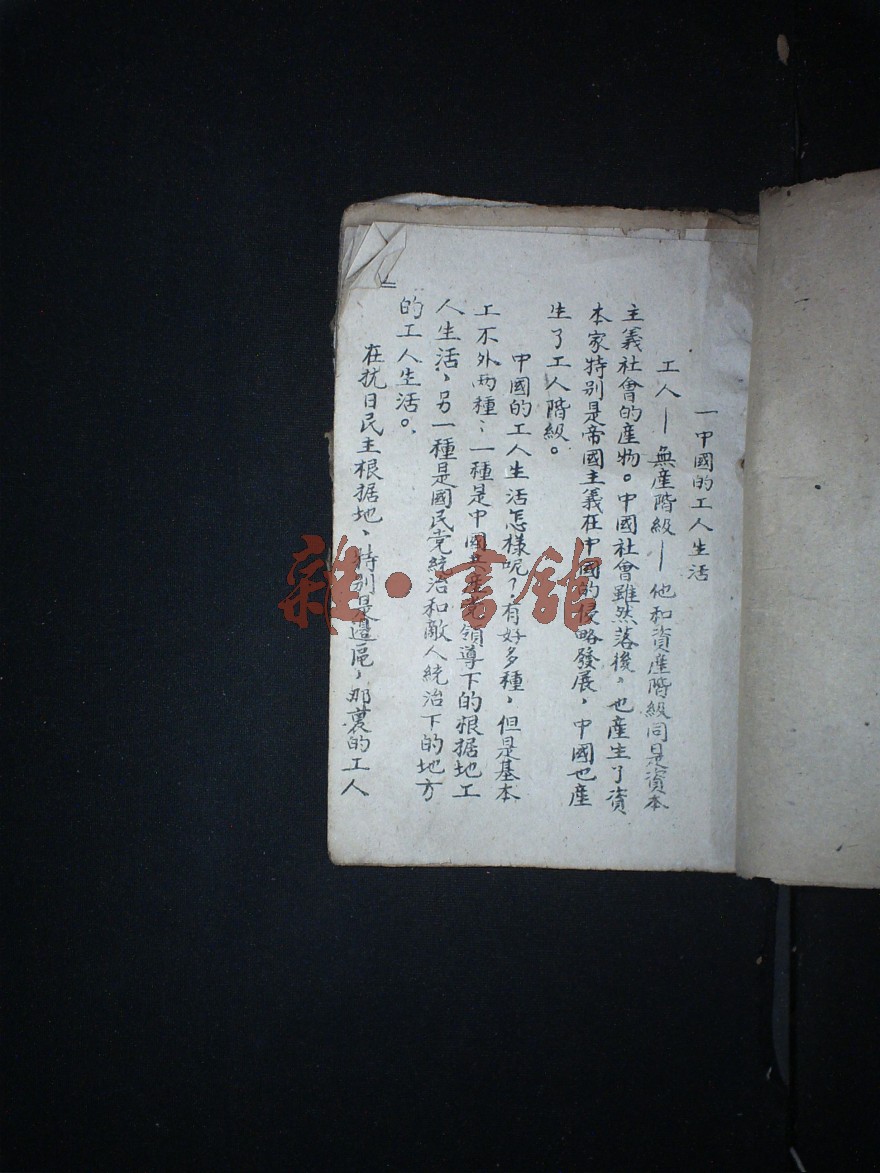 一中國的工人生活
工人—無產階級—他和資產階級同是資本
主義社會的產物。中國社會雖然落後，也產生了資
本家特别是帝國主義在中國的侵略發展，中國也產
生了工人階級。
中國的工人生活怎樣呢？有好多種，但是基本
工不外兩種：一種是中國共產党領導下的根据地工
人生活，另一種是國民党統治和敵人統治下的地方
的工人生活。
在抗日民主根据地，特别是邊區，那裏的工人
雜·書館